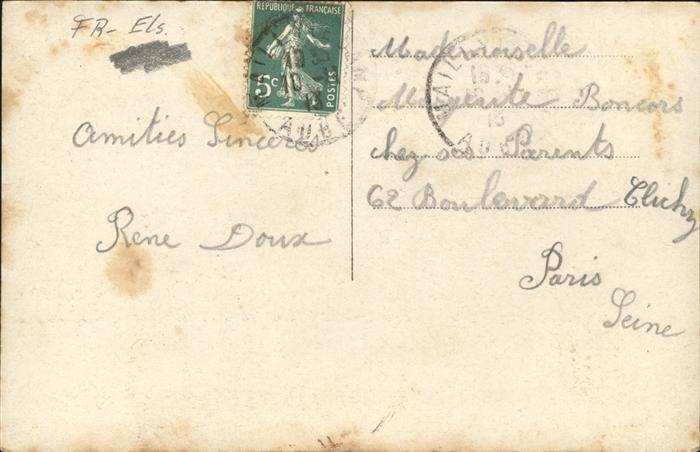 FR- Els.
REPUBLIQUE FRANÇAISE
5c
POSTES
Amitiés Sincères
Rene Doux
Mademoiselle
Marguerite Boncors
chez ses Parents
62 Boulevard Clichy
Paris
Seine
MAILLY
AUBE